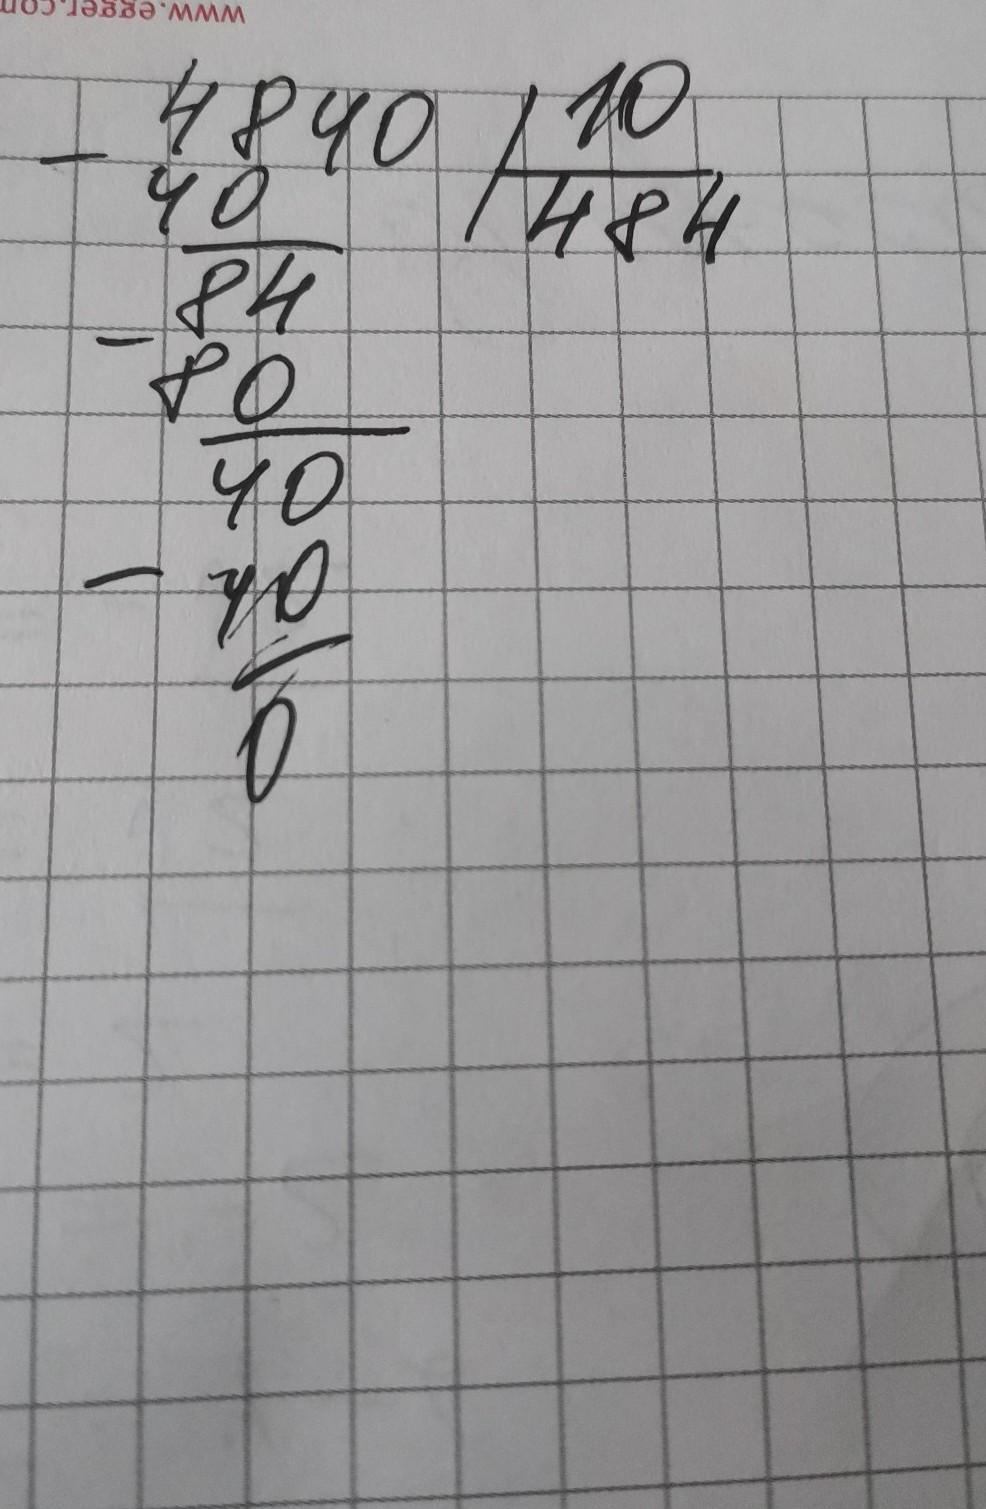 www.egger.com
4840 | 10
- 40 484
84
- 80
40
- 40
0